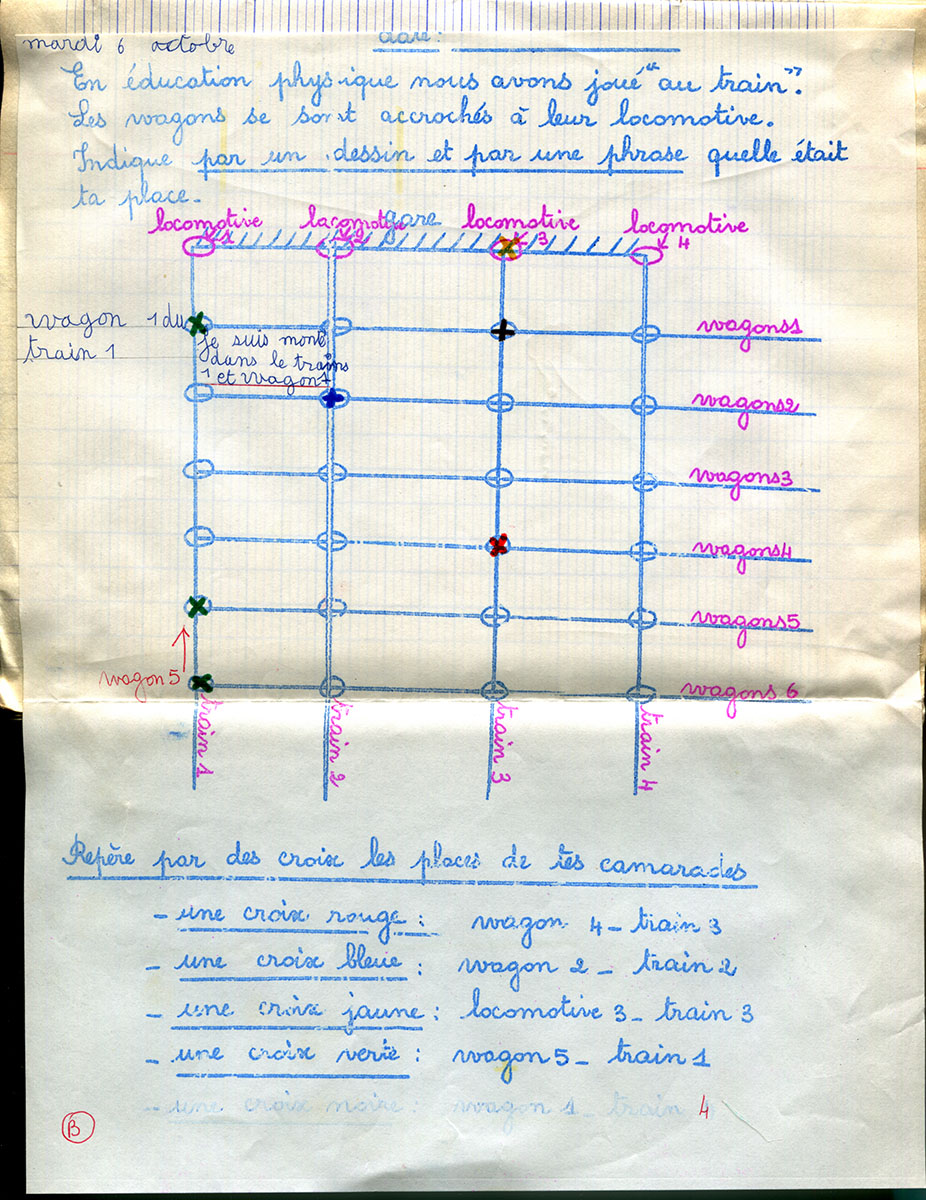 mardi 6 octobre
date:
En éducation physique nous avons joué "au train".
Les wagons se sont accrochés à leur locomotive.
Indique par un dessin et par une phrase quelle était
ta place.
gare
locomotive 1
locomotive 2
locomotive 3
locomotive 4
wagon 1 du
train 1
je suis monté
dans le trains
1 et wagon 1
wagons1
wagons2
wagons3
wagons4
wagons5
wagon 5
wagons 6
train 1
train 2
train 3
train 4
Repère par des croix les places de tes camarades
- une croix rouge : wagon 4 - train 3
- une croix bleue : wagon 2 - train 2
- une croix jaune : locomotive 3 - train 3
- une croix verte : wagon 5 - train 1
- une croix noire : wagon 1 - train 4
B